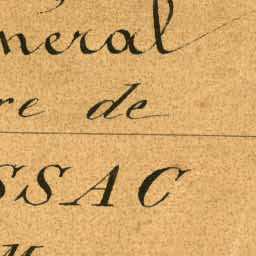 néral
re de
SSAC